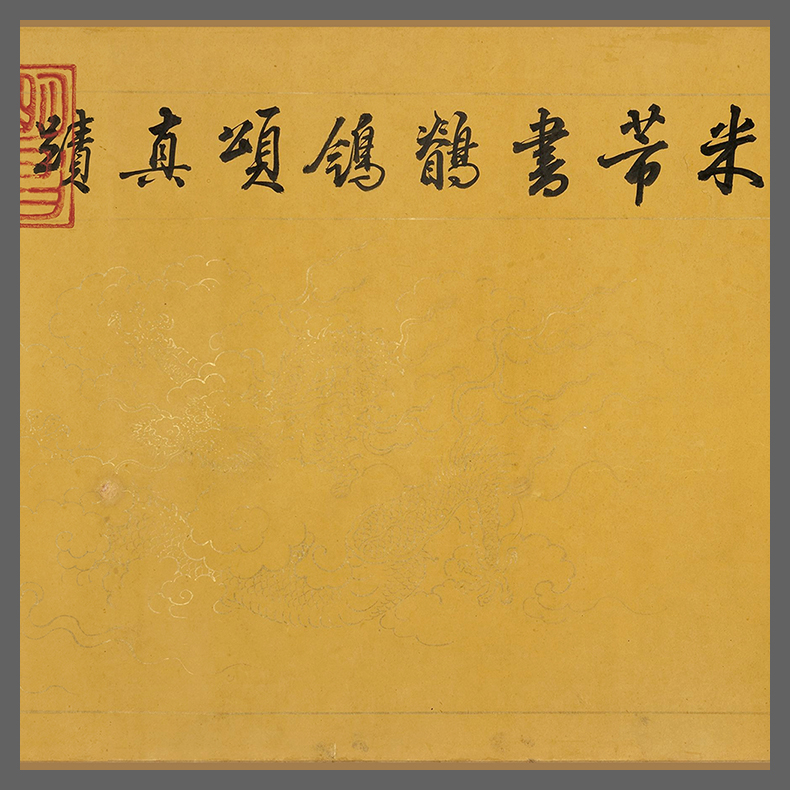 米芾書鶺鴒頌真蹟